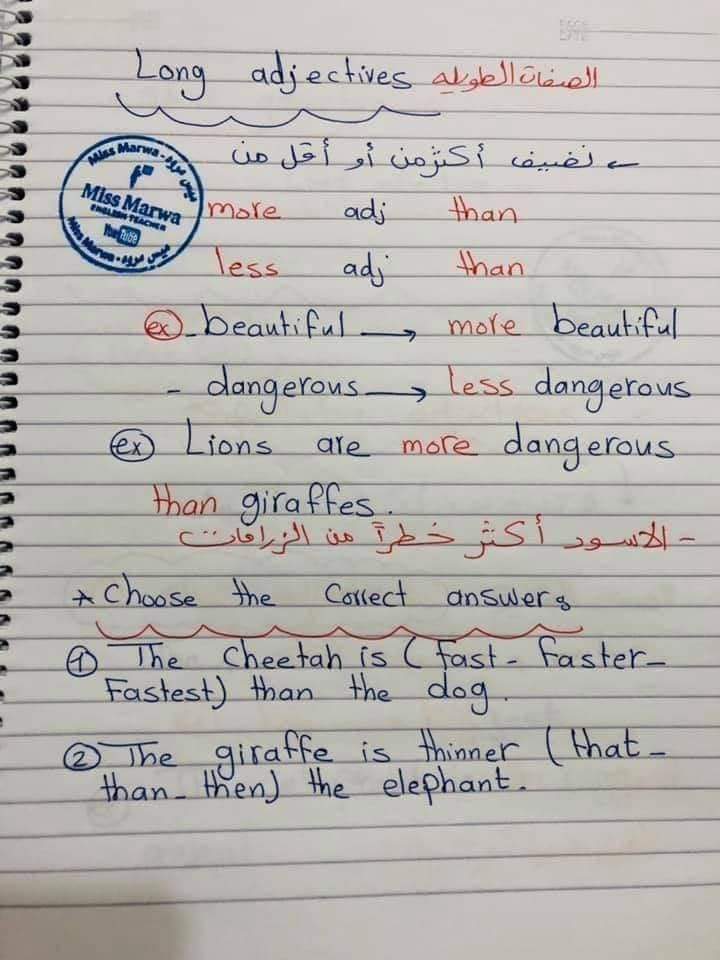 Long adjectives الصفات الطويله
← نضيف أكثر من أو أقل من
Miss Marwa - ميس مروه
Miss Marwa
ENGLISH TEACHER
YouTube
Miss Marwa - ميس مروه
more adj than
less adj than
ex - beautiful → more beautiful
- dangerous → less dangerous
ex Lions are more dangerous
than giraffes.
- الاسود أكثر خطراً من الزرافات
* Choose the Correct answer:
① The Cheetah is (fast - faster -
Fastest) than the dog.
② The giraffe is thinner (that -
than - then) the elephant.